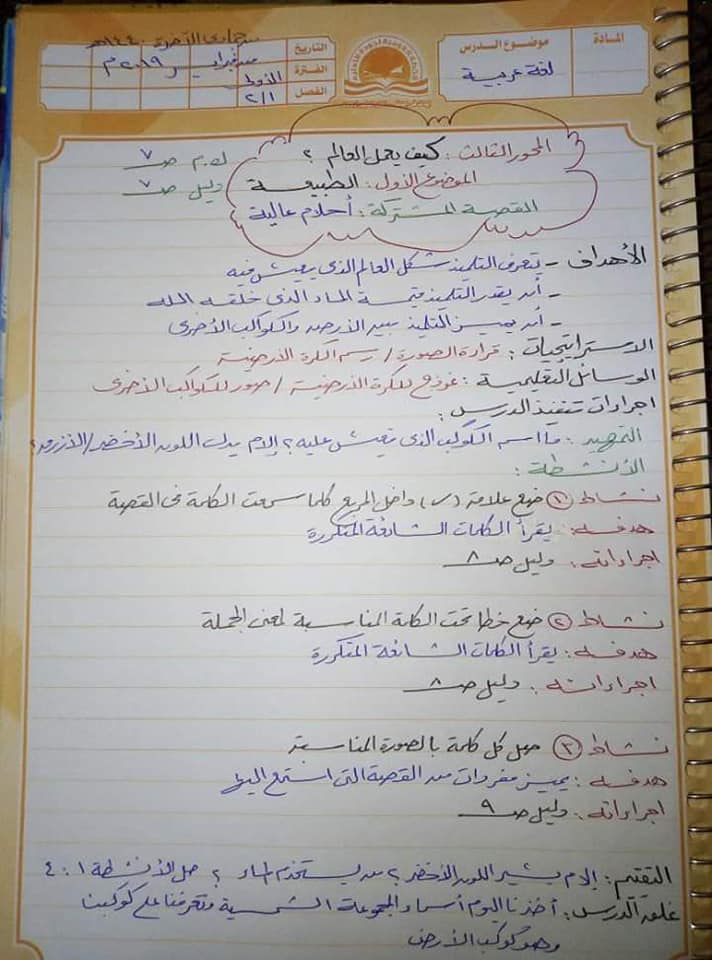 المادة
موضوع الدرس
لغة عربية
التاريخ
الفترة
الفصل
جمادى الآخرة ١٤٤٠هـ
من فبراير ٢٠١٩م
الأولى
٢/١
المحور الثالث: كيف يعمل العالم؟
ك.م ص٧
الموضوع الأول: الطبيعة
دليل ص٧
القصة المشتركة: أحلام عالية
الأهداف - يتعرف التلميذ شكل العالم الذى يعيش فيه
- أن يقدر التلميذ قيمة الماء الذى خلقه الله
- أن يميز التلميذ بين الأرض والكواكب الأخرى
الاستراتيجيات: قراءة الصورة / رسم الكرة الأرضية
الوسائل التعليمية: نموذج للكرة الأرضية / صور للكواكب الأخرى
اجراءات تنفيذ الدرس:
التمهيد: ما اسم الكوكب الذى نعيش عليه؟ إلام يدل اللون الأخضر/الأزرق؟
الأنشطة:
نشاط ١ ضع علامة (√) داخل المربع كلما سمعت الكلمة فى القصة
هدفه: يقرأ الكلمات الشائعة المتكررة
اجراءاته: دليل ص٨
نشاط ٢ ضع خطا تحت الكلمة المناسبة لمعنى الجملة
هدفه: يقرأ الكلمات الشائعة المتكررة
اجراءاته: دليل ص٨
نشاط ٣ صل كل كلمة بالصورة المناسبة
هدفه: يميز مفردات من القصة التى استمع إليها
اجراءاته: دليل ص٩
التقييم: إلام يشير اللون الأخضر؟ من يستخدم الماء؟ حل الأنشطة ١: ٤
غلق الدرس: أخذنا اليوم أسماء المجموعة الشمسية وتعرفنا على كوكبنا
وهو كوكب الأرض